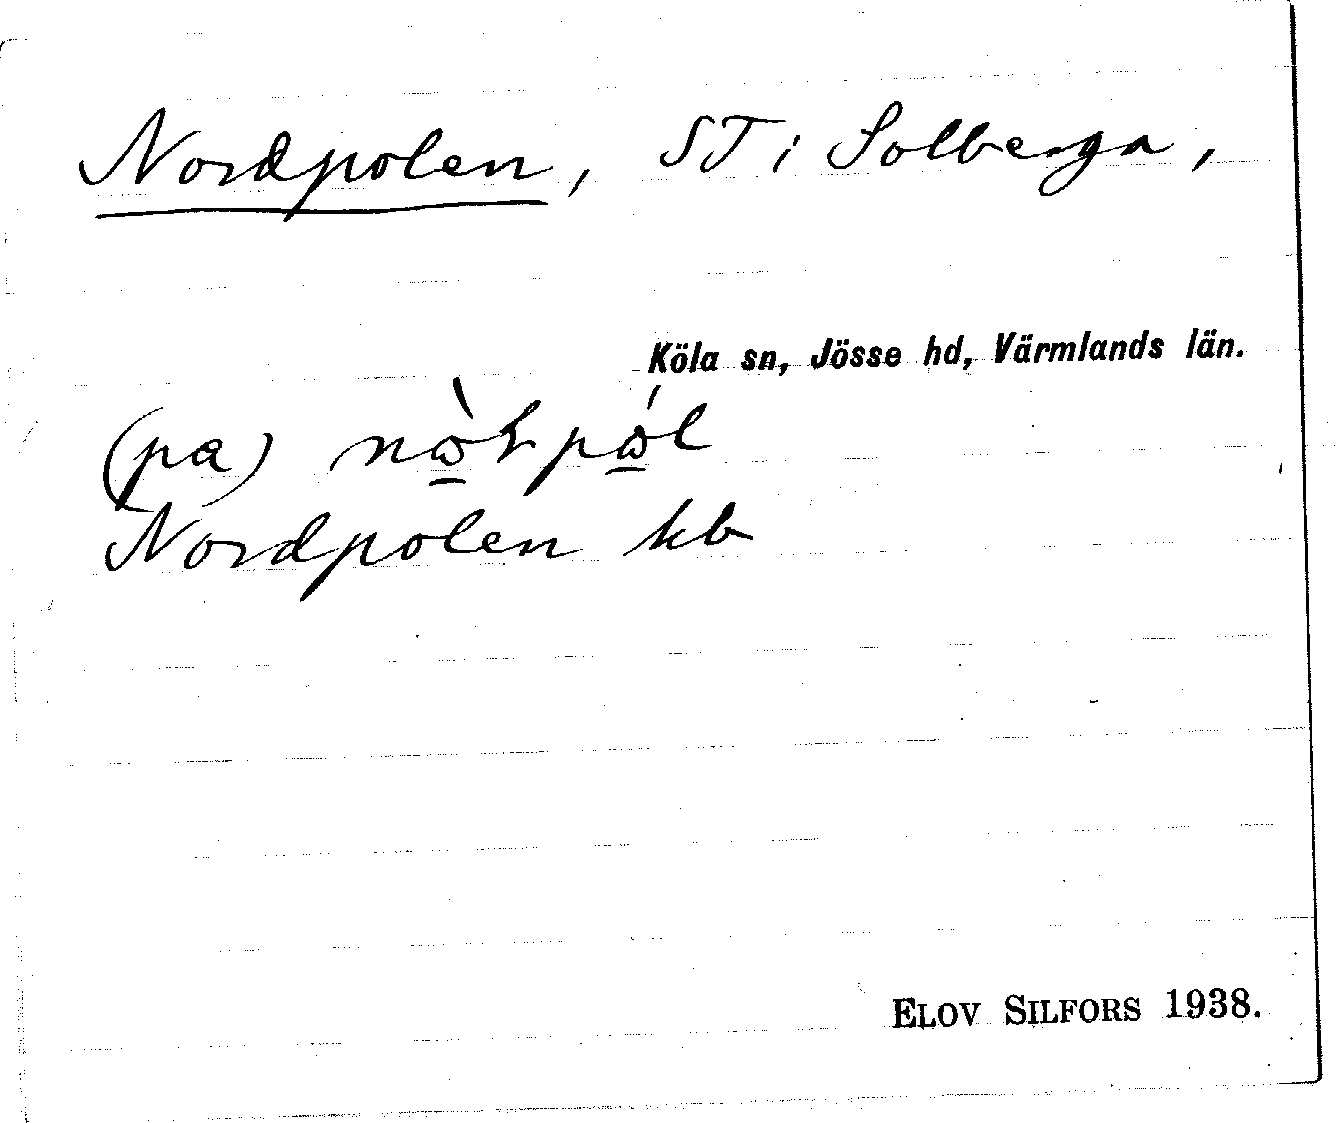 Nordpolen, ST i Solberga,
Köla sn, Jösse hd, Värmlands län.
(pa)
Nordpolen kb
ELOV SILFORS 1938.